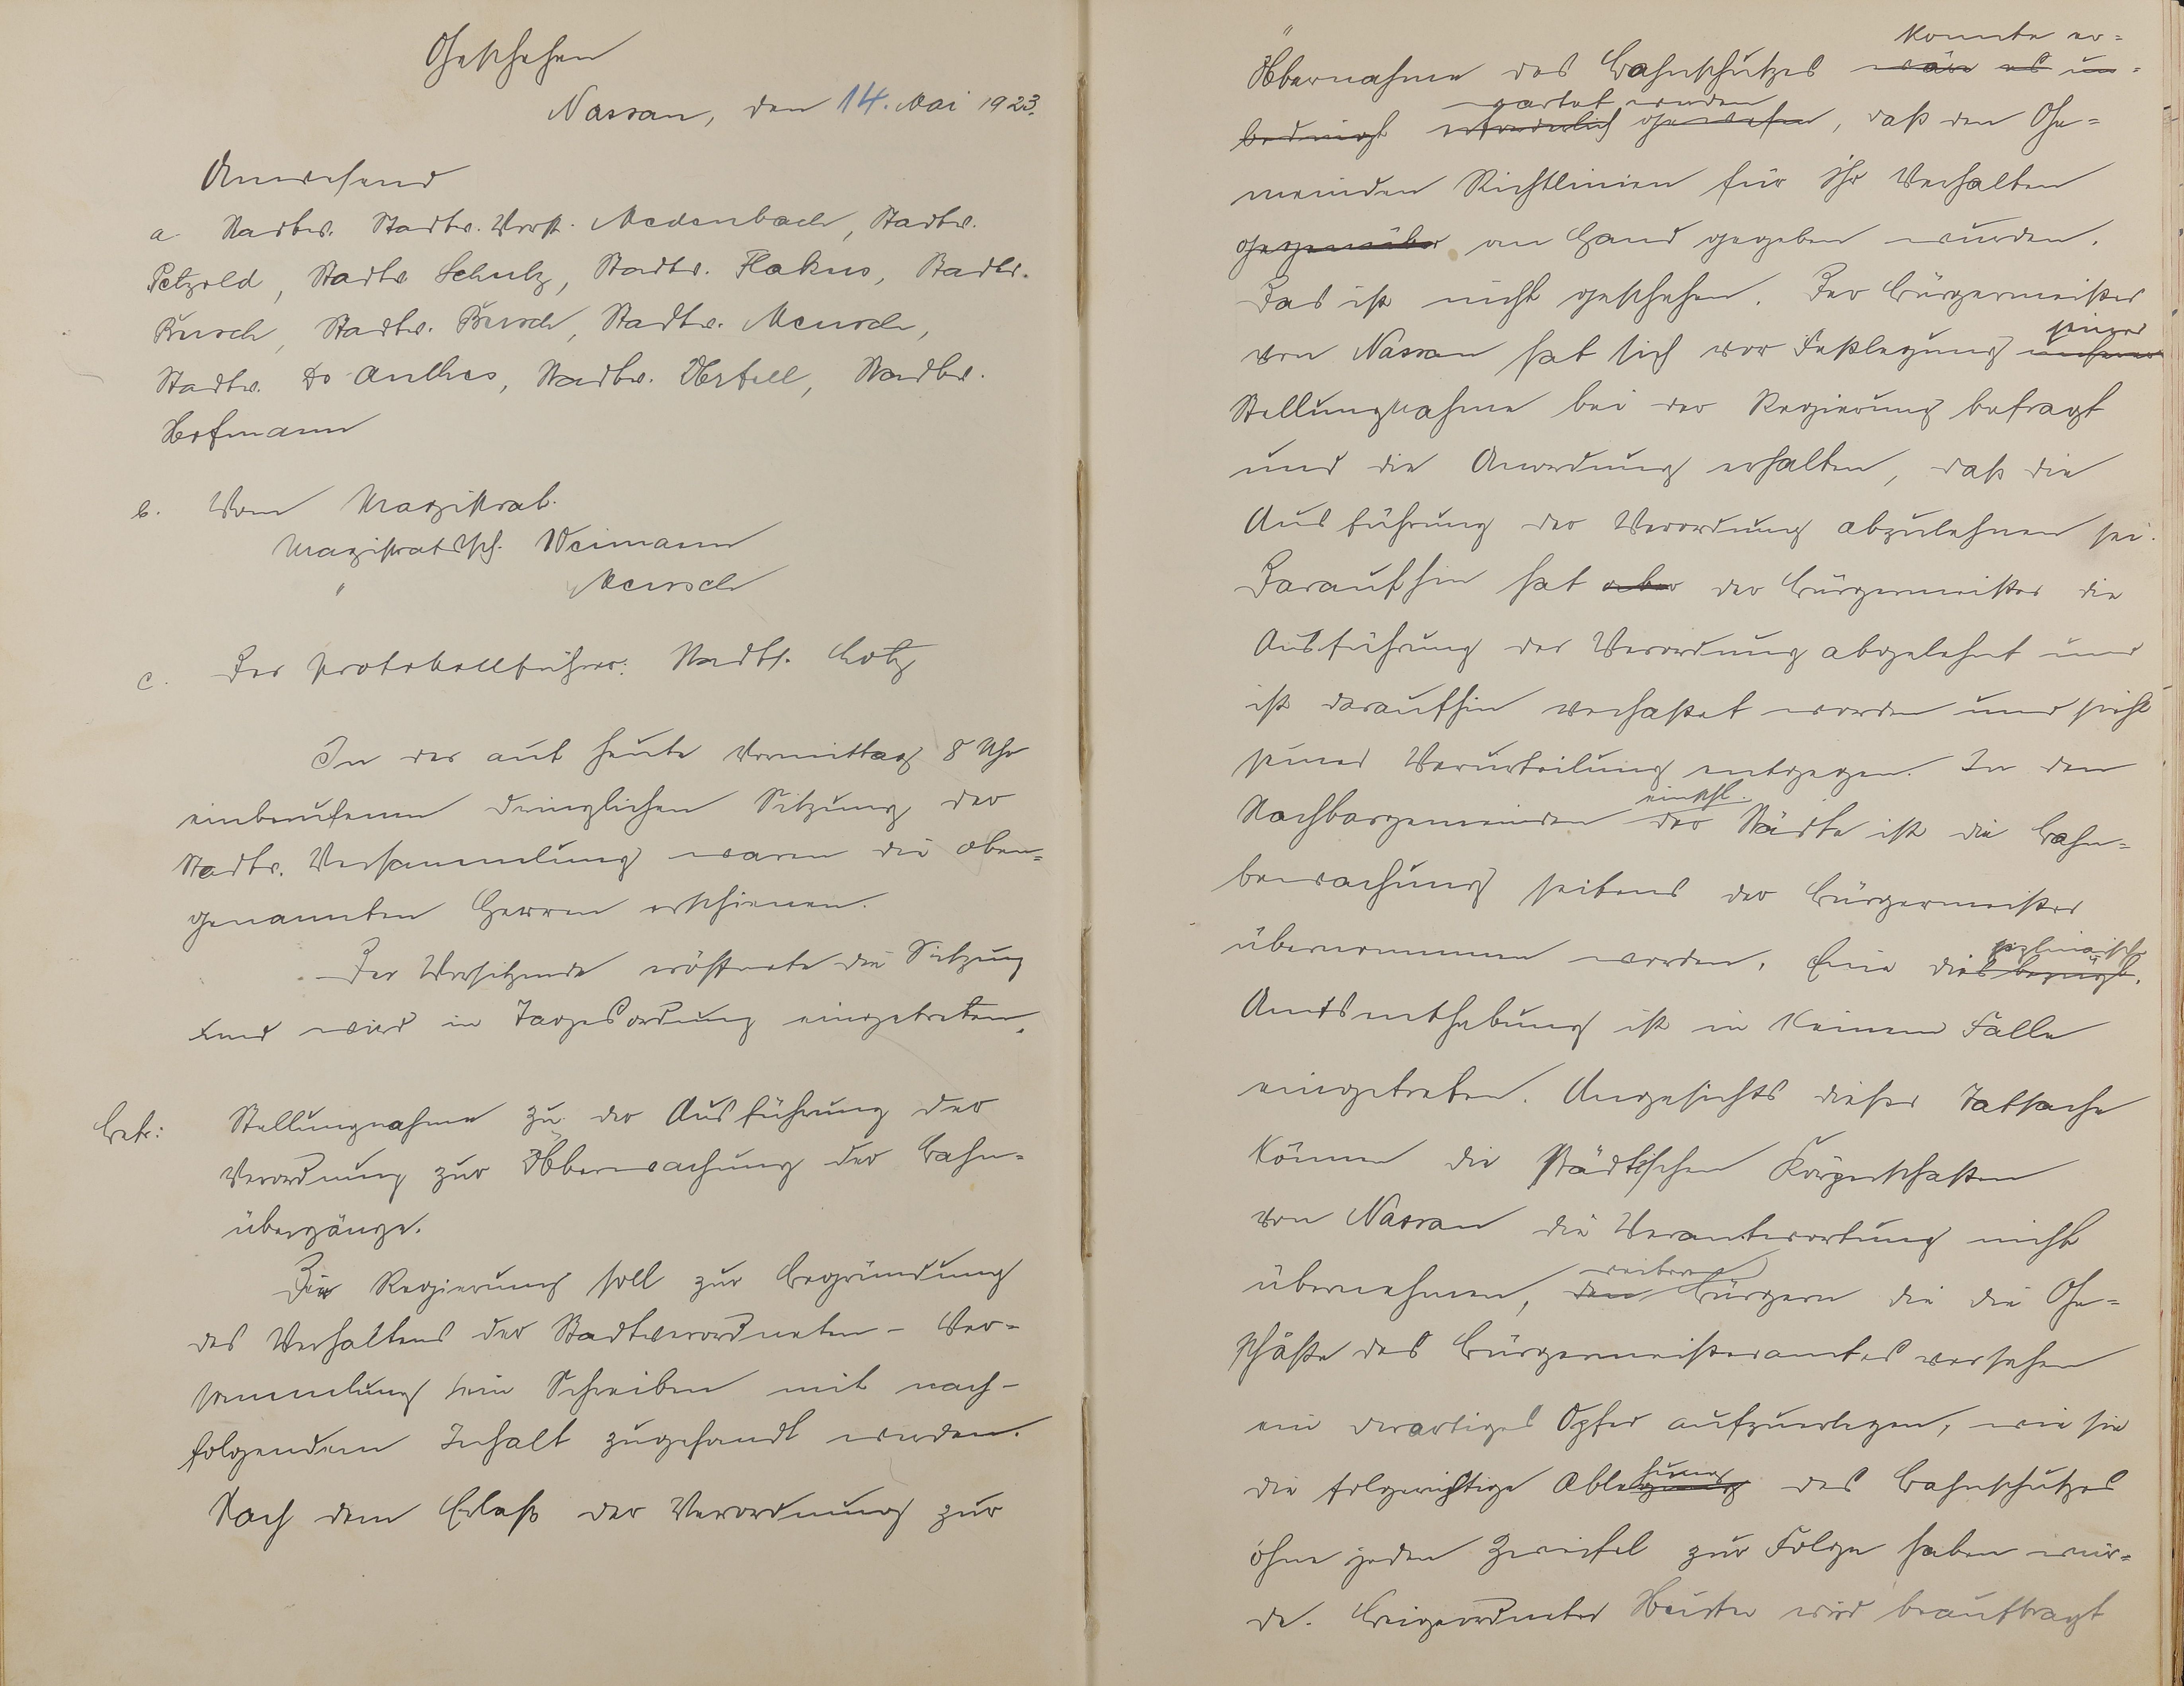 Geschehen
Nassau, den 14. Mai 1923.
Anwesend
a. Stadtv. Stadtv. Vorst. Medenbach, Stadtv.
Petzold, Stadtv. Schulz, Stadtv. Flakus, Stadtv.
Busch, Stadtv. Busch, Stadtv. Meusch,
Stadtv. Dr Anthes, Stadtv. Oertell, Stadtv.
Hofmann
b. Vom Magistrat.
Magistratssch. Weimann
" Meusch
c. Der Protokollführer: Stadts. Lotz
In der auf heute Vormittag 8 Uhr
einberufenen dringlichen Sitzung der
Stadtv. Versammlung waren die oben=
genannten Herren erschienen.
Der Vorsitzende eröffnete die Sitzung
und wird in Tagesordnung eingetreten.
Betr: Stellungnahme zu der Ausführung der
Verordnung zur Überwachung der Bahn=
übergänge.
Die Regierung soll zur Begründung
des Verhaltens der Stadtverordneten-Ver=
sammlung ein Schreiben mit nach-
folgendem Inhalt zugesandt werden.
Nach dem Erlaß der Verordnung zur
konnte er=
Übernahme des Bahnschutzes wäre es un=
wartet werden
bedingt erforderlich gewesen, daß den Ge=
meinden Richtlinien für ihr Verhalten
gegenüber an Hand gegeben wurden.
Das ist nicht geschehen. Der Bürgermeister
seiner
von Nassau hat sich vor Festlegung unserer
Stellungnahme bei der Regierung befragt
und die Anordnung erhalten, daß die
Ausführung der Verordnung abzulehnen sei.
Daraufhin hat aber der Bürgermeister die
Ausführung der Verordnung abgelehnt und
ist daraufhin verhaftet worden und sieht
seiner Verurteilung entgegen. In den
einschl.
Nachbargemeinden der Städte ist die Bahn=
bewachung seitens der Bürgermeister
übernommen worden. Eine diesbezügl.
Amtsenthebung ist in keinem Falle
eingetreten. Angesichts dieser Tatsache
können die städtischen Körperschaften
von Nassau die Verantwortung nicht
weiteren
übernehmen, den Bürgern die die Ge=
schäfte des Bürgermeisteramtes versehen
ein derartiges Opfer aufzuerlegen, wie sie
hnung
die folgerichtige Ablegung des Bahnschutzes
ohne jeden Zweifel zur Folge haben wür=
de. Beigeordneter wird beauftragt